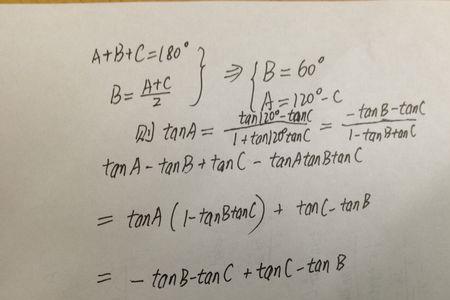 A+B+C=180°
B=\frac{A+C}{2}
} ⇒ { B=60°
A=120°-C
则 tanA = \frac{tan120°-tanC}{1+tan120°tanC} = \frac{-tanB-tanC}{1-tanBtanC}
tanA-tanB+tanC-tanAtanBtanC
= tanA(1-tanBtanC)+ tanC-tanB
= -tanB-tanC+tanC-tanB